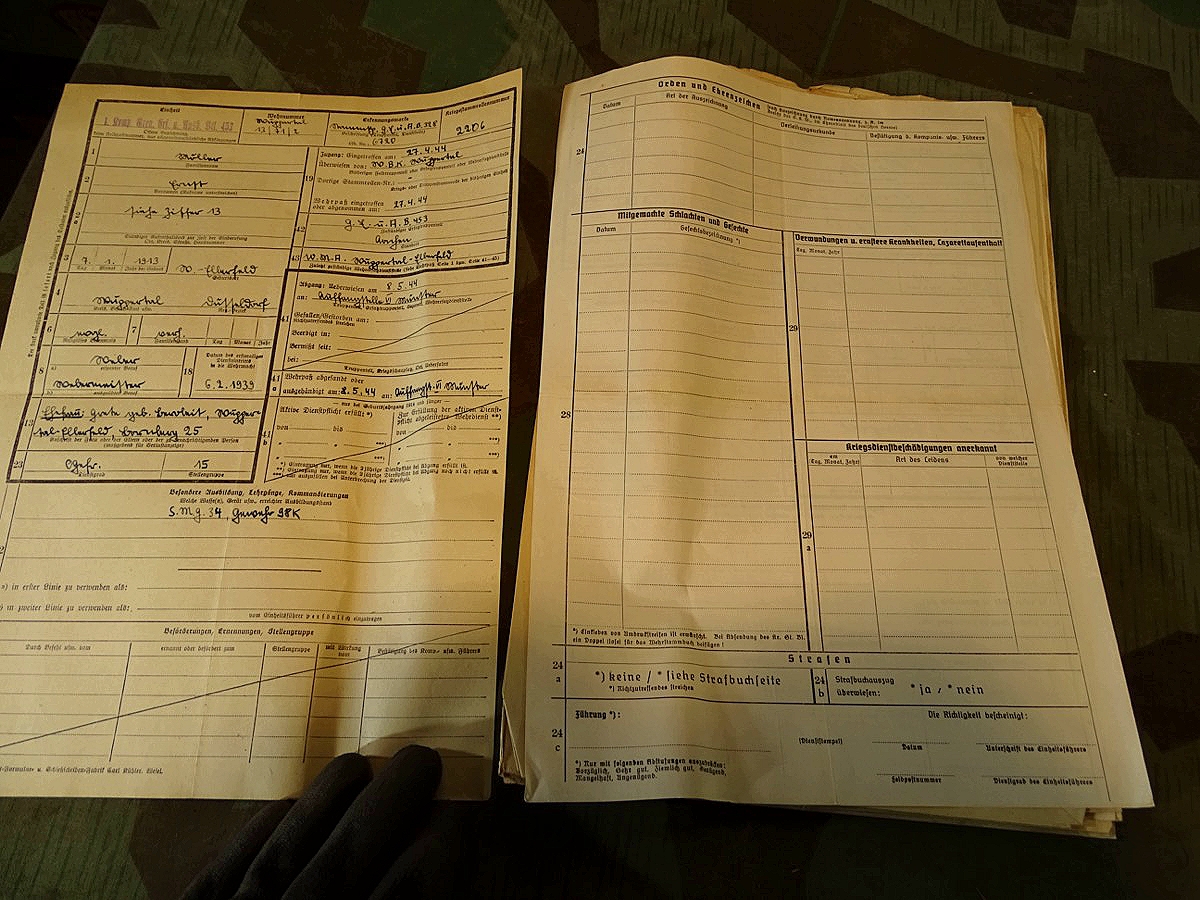 Einheit
Wehrnummer
Wuppertal
Erkennungsmarke
Kriegsstammrollennummer
2206
1
Müller
Familienname
2
Ernst
siehe Ziffer 13
3
7. 1. 1913
W.-Elberfeld
Tag Monat Jahr der Geburt
Geburtsort
4
Wuppertal Düsseldorf
6
evgl.
7
verh.
Familienstand
Tag Monat Jahr
8
Weber
Webermeister
18
Datum des erstmaligen
Diensteintritts
in die Wehrmacht
6.2.1939
13
Ehefrau: Grete geb.
tal-Elberfeld, 25
23
Gefr.
Dienstgrad
15
Stellengruppe
19
Zugang: Eingetroffen am: 27.4.44
Überwiesen von: W.B.K. Wuppertal
Vorige Stammrollen-Nr.: -
Wehrpaß eingetroffen
oder abgenommen am: 27.4.44
42
G.E. u. A.B. 453
Aachen
Standort
43
W.M.A. Wuppertal-Elberfeld
Abgang: Überwiesen am 8.5.44
an: Auffangstelle VI Münster
41
Gefallen/Gestorben am:
Nichtzutreffendes streichen
Beerdigt in:
Vermißt seit:
bei:
41
a
Wehrpaß abgesandt oder
ausgehändigt am: 8.5.44 an: Auffangst. VI Münster
41
b
Aktive Dienstpflicht erfüllt *)
von bis
Zur Erfüllung der aktiven Dienst-
pflicht abgeleisteter Wehrdienst **)
von bis
***)
Besondere Ausbildung, Lehrgänge, Kommandierungen
Welche Waffe(n), Gerät usw., erreichter Ausbildungsstand
S.M.G. 34, Gewehr 98K
*) in erster Linie zu verwenden als:
) in zweiter Linie zu verwenden als:
vom Einheitsführer persönlich einzutragen
Beförderungen, Ernennungen, Stellengruppe
Durch Befehl usw. vom
ernannt oder befördert zum
Stellengruppe
mit Wirkung
vom
Bestätigung des Komp.- usw. Führers
-Formular- u. Schießscheiben-Fabrik Carl Kühler, Wesel.
Orden und Ehrenzeichen
24
Datum
Art der Auszeichnung
Verleihungsurkunde
Bestätigung d. Kompanie- usw. Führers
Mitgemachte Schlachten und Gefechte
Datum
Gefechtsbezeichnung *)
28
Verwundungen u. ernstere Krankheiten, Lazarettaufenthalt
Tag, Monat, Jahr
29
Kriegsdienstbeschädigungen anerkannt
am
Tag, Monat, Jahr
Art des Leidens
von welcher
Dienststelle
29
a
*) Einkleben von Umdruckstreifen ist erwünscht. Bei Absendung des Kr. St. Bl.
ein Doppel (lose) für das Wehrstammbuch beifügen!
Strafen
24
a
*) keine / * siehe Strafbuchseite
*) Nichtzutreffendes streichen
24
b
Strafbuchauszug
überwiesen: * ja / * nein
24
c
Führung *):
Die Richtigkeit bescheinigt:
(Dienststempel)
Datum
Unterschrift des Einheitsführers
*) Nur mit folgenden Abstufungen auszudrücken:
Vorzüglich, Sehr gut, Ziemlich gut, Genügend,
Mangelhaft, Ungenügend.
Feldpostnummer
Dienstgrad des Einheitsführers